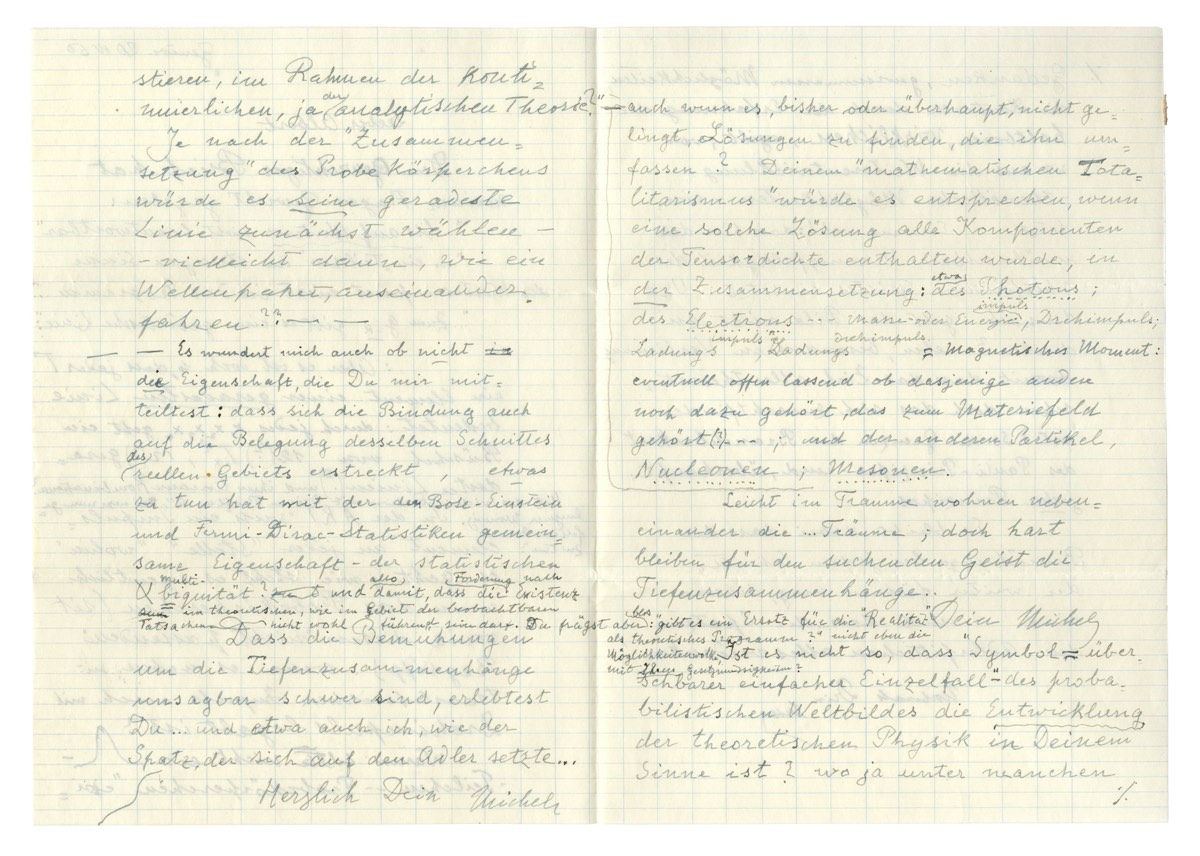 stieren, im Rahmen der Konti=
nuierlichen, ja der analytischen Theorie?"
Je nach der "Zusammen=
setzung" des Probekörperchens
würde es seine geradeste
Linie zunächst wählen –
– vielleicht dann, wie ein
Wellenpaket, auseinander
fahren?? — —
— — Es wundert mich auch ob nicht
die Eigenschaft, die Du mir mit=
teiltest: dass sich die Bindung auch
auf die Belegung desselben Schnittes
des reellen Gebiets erstreckt, etwas
zu tun hat mit der den Bose-Einstein
und Fermi-Dirac-Statistiken gemein=
same Eigenschaft – der statistischen
multi-
biguität? und damit, also, dass die Forderung nach Existenz
im theoretischen, wie im Gebiet der beobachtbaren
Tatsachen nicht wohl führen sein darf. Du frägst aber: "gibt es ein Ersatz für die "Realität
als theoretisches Programm?" nicht eben die
mit
Dass die Bemühungen
um die Tiefenzusammenhänge
unsagbar schwer sind, erlebtest
Du ... und etwa auch ich, wie der
Spatz, der sich auf den Adler setzte...
Herzlich Dein Michele
– auch wenn es, bisher oder überhaupt, nicht ge=
lingt, Lösungen zu finden, die ihn um=
fassen? Deinem "mathematischen Tota=
litarismus" würde es entsprechen, wenn
eine solche Lösung alle Komponenten
der Tensordichte enthalten würde, in
der Zusammensetzung: etwa des Photons;
impuls
des Electrons --- Masse- oder Energie, Drehimpuls;
impuls drehimpuls
Ladungs Ladungs = Magnetisches Moment:
eventuell offen lassend ob dasjenige anden
noch dazu gehört, das zum Materiefeld
gehört (?) ---; und der anderen Partikel,
Nucleonen; Mesonen.
Leicht im Traume wohnen neben=
einander die ... Träume; doch hart
bleiben für den suchenden Geist die
Tiefenzusammenhänge..
Dein Michele
Ist es nicht so, dass "Symbol = über=
sehbarer einfacher Einzelfall" des proba=
bilistischen Weltbildes die Entwicklung
der theoretischen Physik in Deinem
Sinne ist? wo ja unter manchen
./.